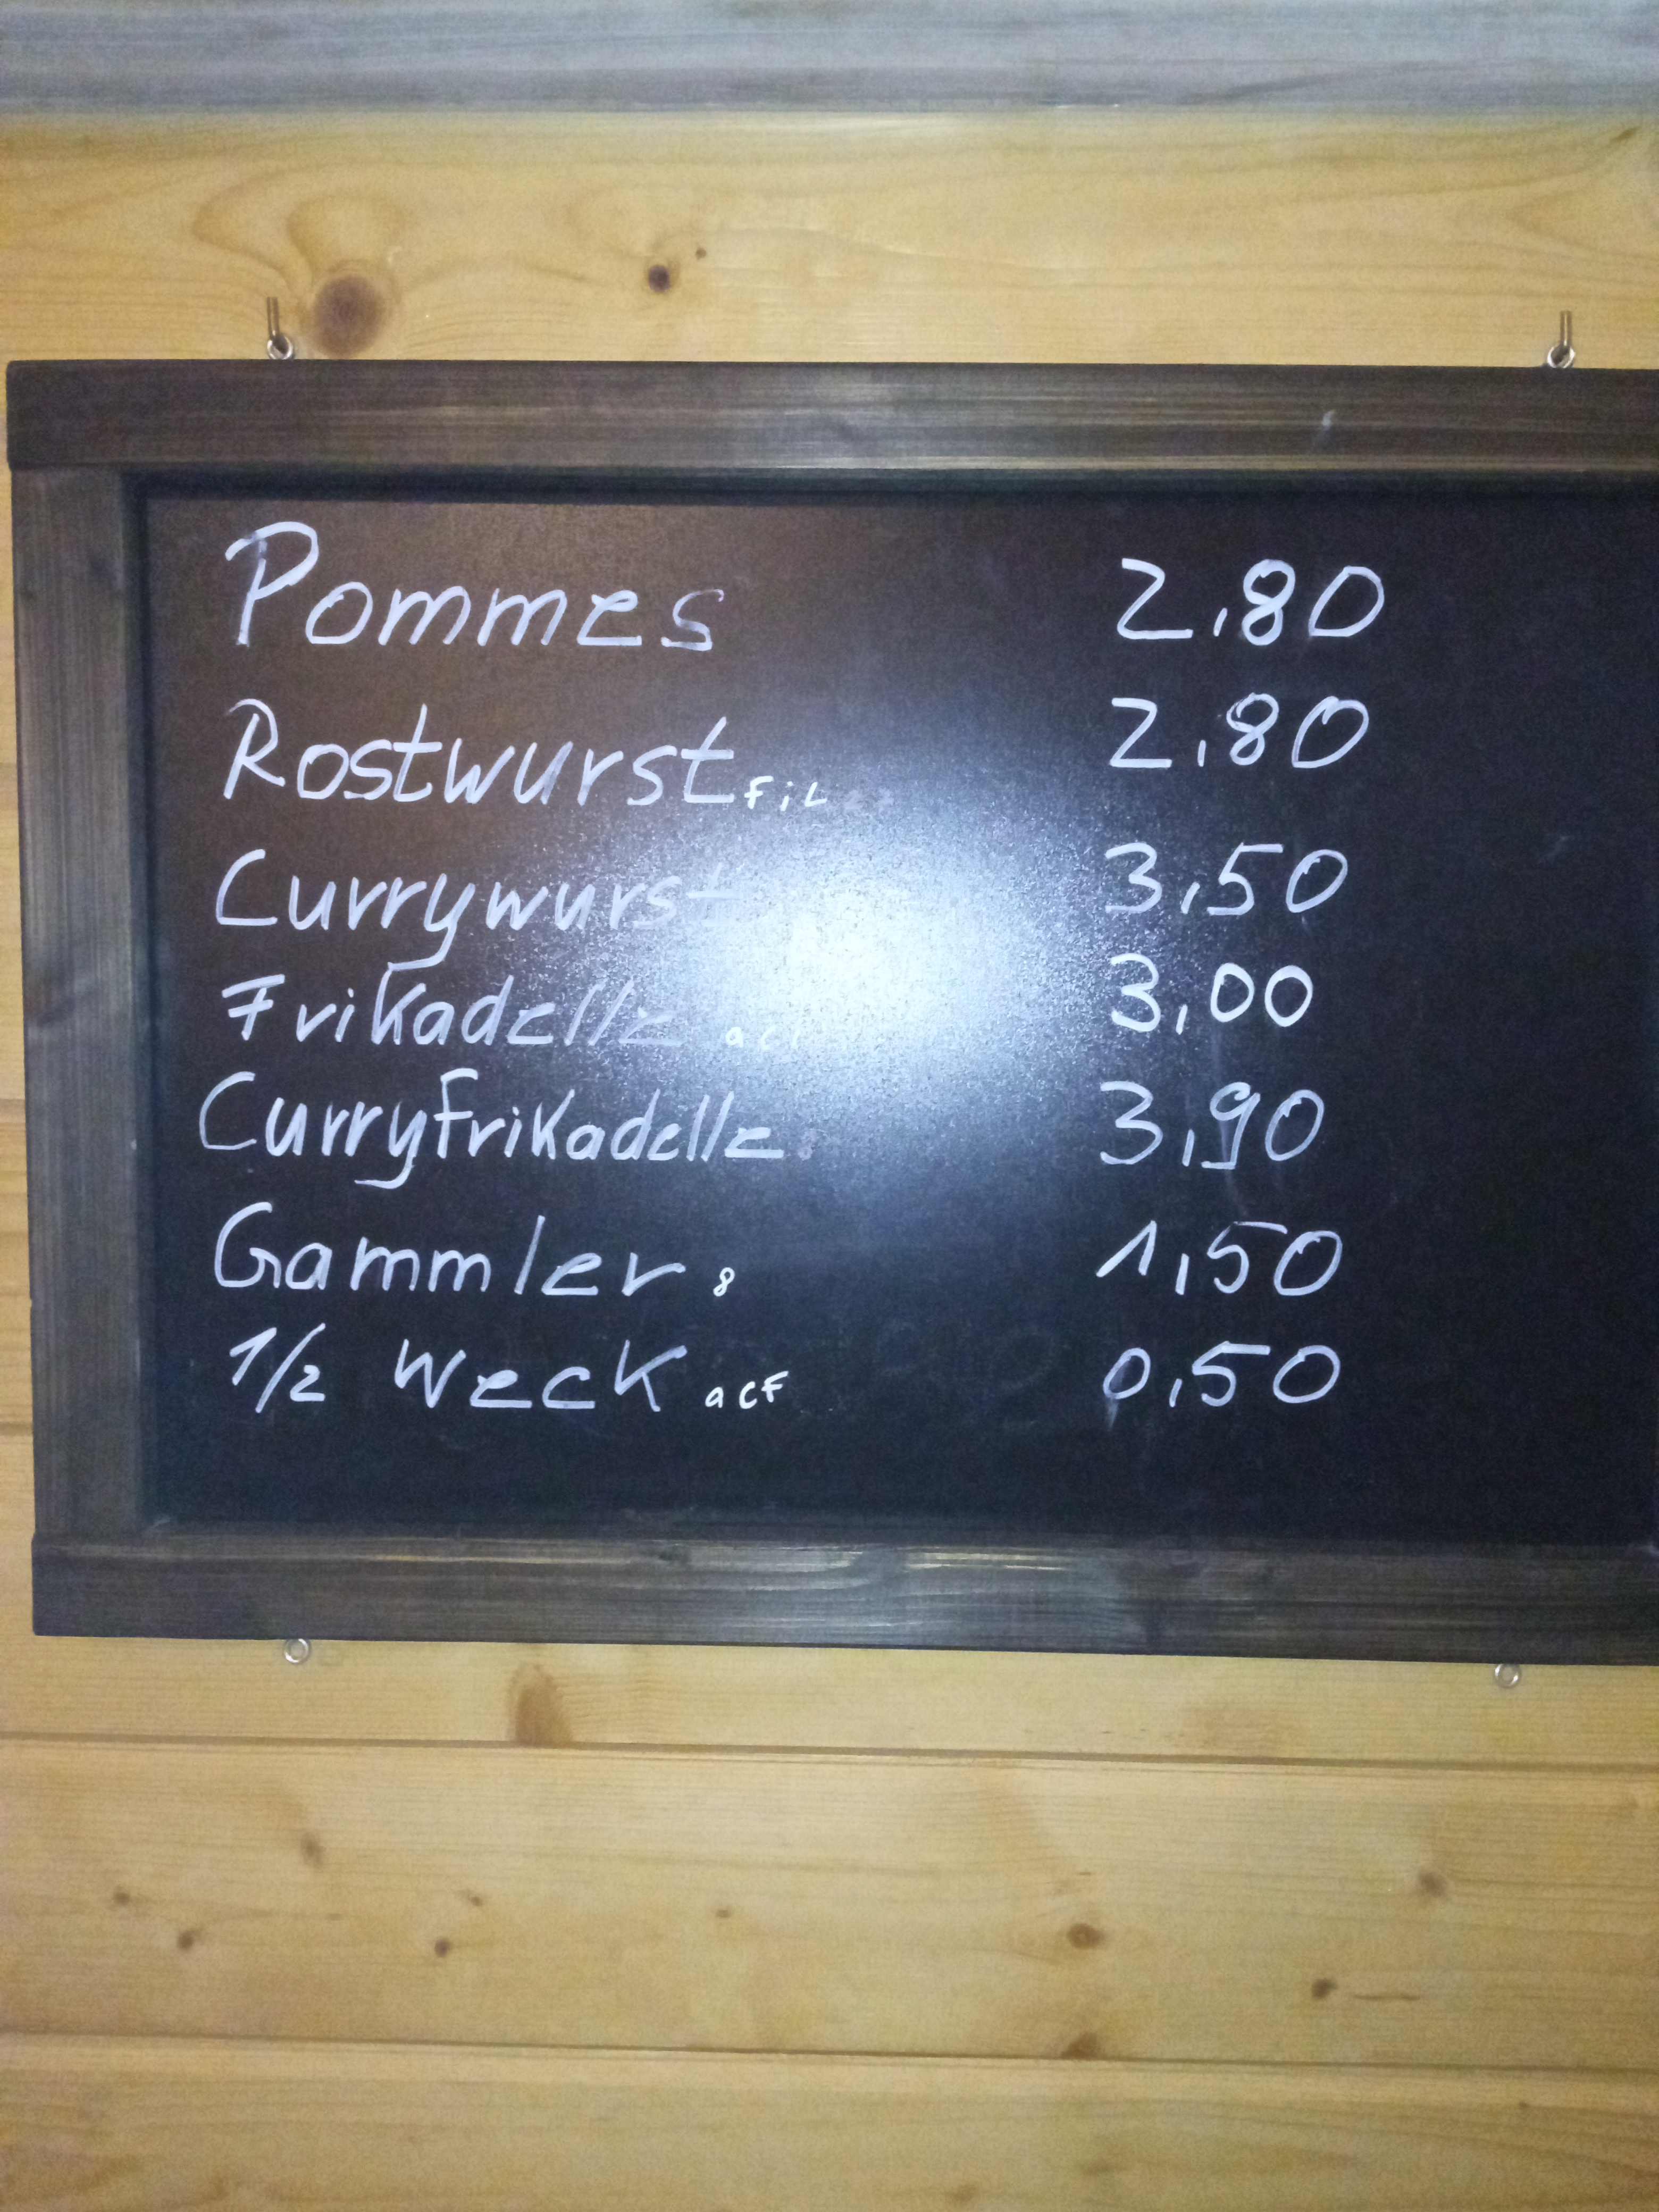 Pommes 2,80
Rostwurst 2,80
Currywurst 3,50
Frikadelle 3,00
Curryfrikadelle 3,90
Gammler 8 1,50
1/2 Weck acf 0,50